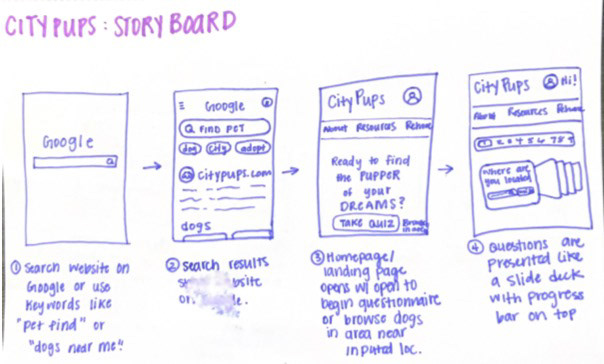 CITY PUPS: STORYBOARD
Google
① Search website on
Google or use
keywords like
"pet find" or
"dogs near me".
Google
FIND PET
dog city adopt
citypups.com
dogs
② Search results
City Pups
About Resources
Ready to find
the PUPPER
of your
DREAMS?
TAKE QUIZ
③ Homepage/
landing page
opens w/ opt to
begin questionnaire
or browse dogs
in area near
inputed loc.
City Pups Hi!
Resources
Where are
you located
④ Questions are
presented like
a slide deck
with progress
bar on top